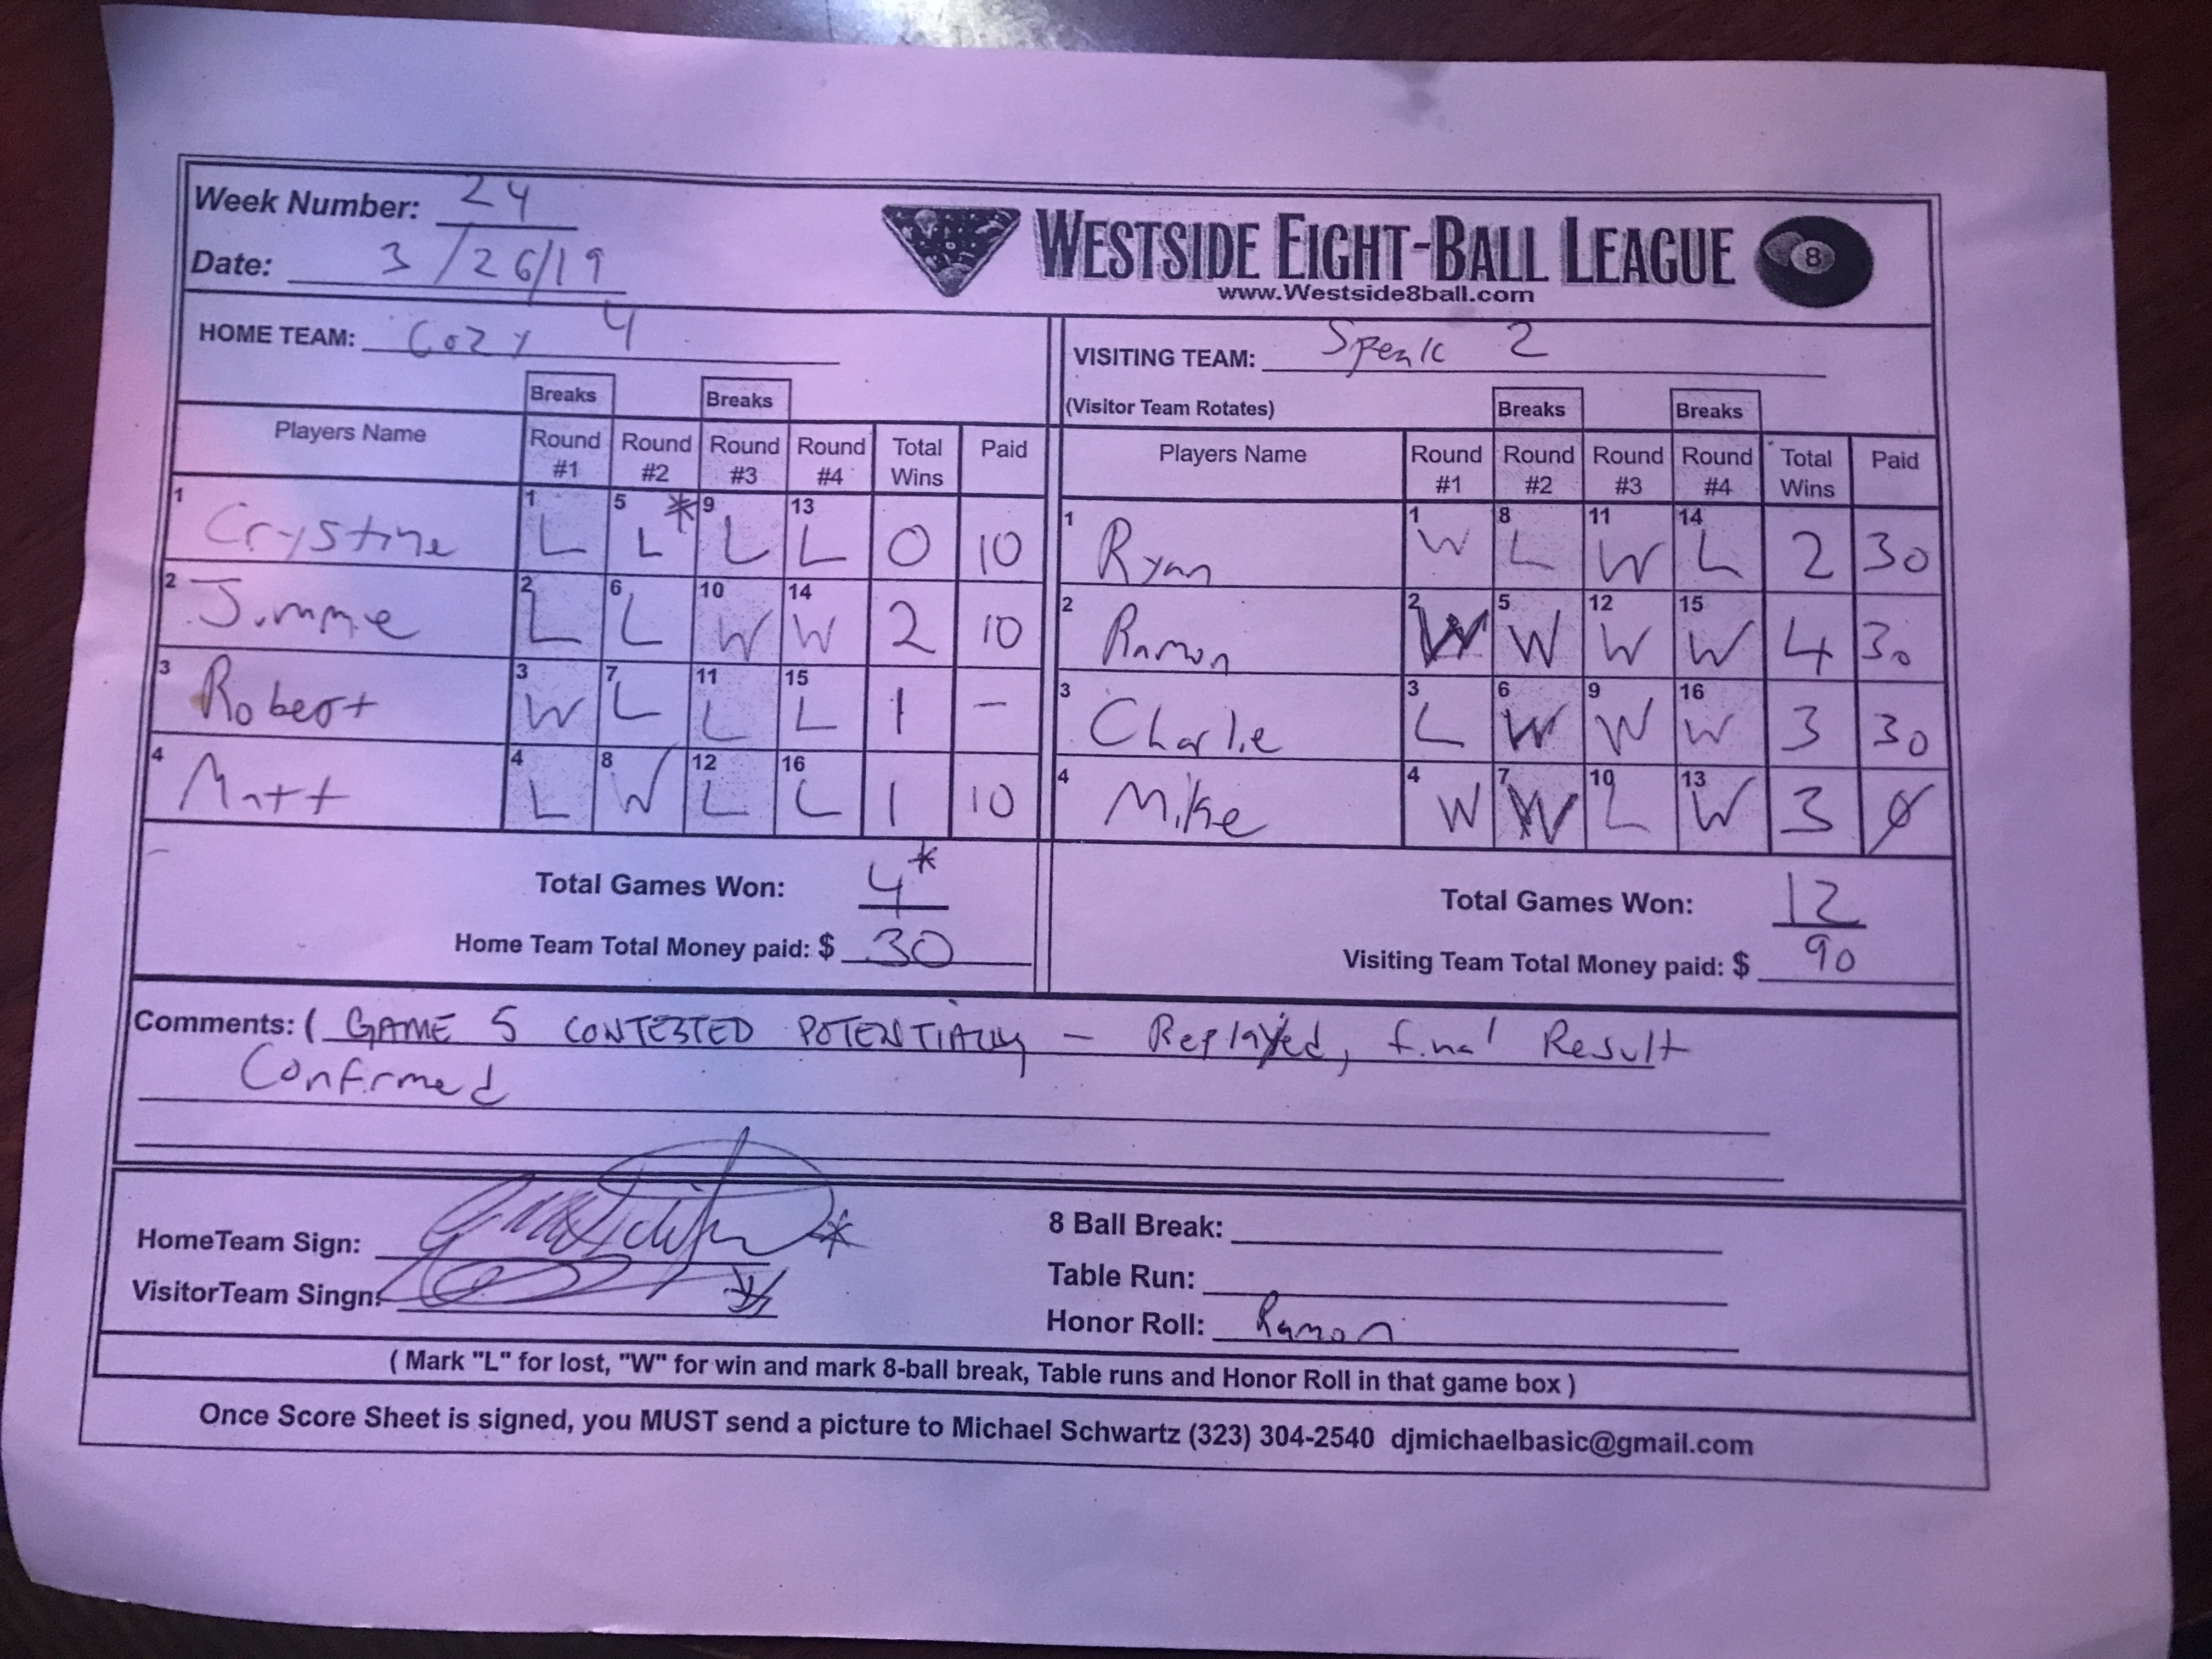 Week Number: 24
Date: 3/26/19
WESTSIDE EIGHT-BALL LEAGUE 8
www.Westside8ball.com
HOME TEAM: Cozy 4
VISITING TEAM: Speak 2
Breaks Breaks
(Visitor Team Rotates) Breaks Breaks
Players Name Round #1 Round #2 Round #3 Round #4 Total Wins Paid
1 Crystine 1 L 5 L * 9 L 13 L 0 10
2 Jimmie 2 L 6 L 10 W 14 W 2 10
3 Robert 3 W 7 L 11 L 15 L 1 –
4 Matt 4 L 8 W 12 L 16 L 1 10
Total Games Won: 4*
Home Team Total Money paid: $ 30
Players Name Round #1 Round #2 Round #3 Round #4 Total Wins Paid
1 Ryan 1 W 8 L 11 W 14 L 2 30
2 Ramon 2 W 5 W 12 W 15 W 4 30
3 Charlie 3 L 6 W 9 W 16 W 3 30
4 Mike 4 W 7 W 10 L 13 W 3 0
Total Games Won: 12
Visiting Team Total Money paid: $ 90
Comments: ( GAME 5 CONTESTED POTENTIALLY – Replayed, final Result
Confirmed
HomeTeam Sign: *
VisitorTeam Singn:
8 Ball Break:
Table Run:
Honor Roll: Ramon
( Mark "L" for lost, "W" for win and mark 8-ball break, Table runs and Honor Roll in that game box )
Once Score Sheet is signed, you MUST send a picture to Michael Schwartz (323) 304-2540 djmichaelbasic@gmail.com